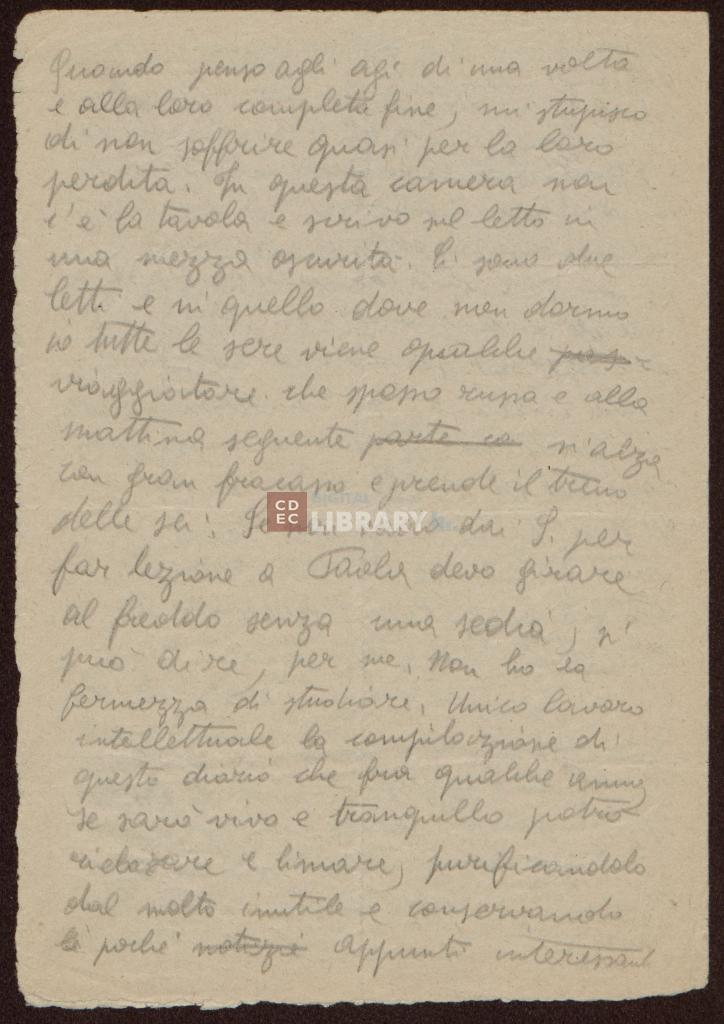 Quando penso agli agi di una volta
e alla loro completa fine, mi stupisco
di non soffrire quasi per la loro
perdita. In questa camera non
c'è la tavola e scrivo sul letto in
una mezza oscurità. Ci sono due
letti e in quello dove non dormo
io tutte le sere viene qualche
viaggiatore che spesso russa e alla
mattina seguente parte co s'alza
con gran fracasso e prende il treno
delle sei. Se non vado dai S. per
far lezione a Paola devo girare
al freddo senza una sedia, si
può dire, per me. Non ho la
fermezza di studiare. Unico lavoro
intellettuale la compilazione di
questo diario che fra qualche anno,
se sarò vivo e tranquillo potrò
rielaborare e limare, purificandolo
dal molto inutile e conservando
le poche notizie appunti interessanti
CDEC
DIGITAL
LIBRARY